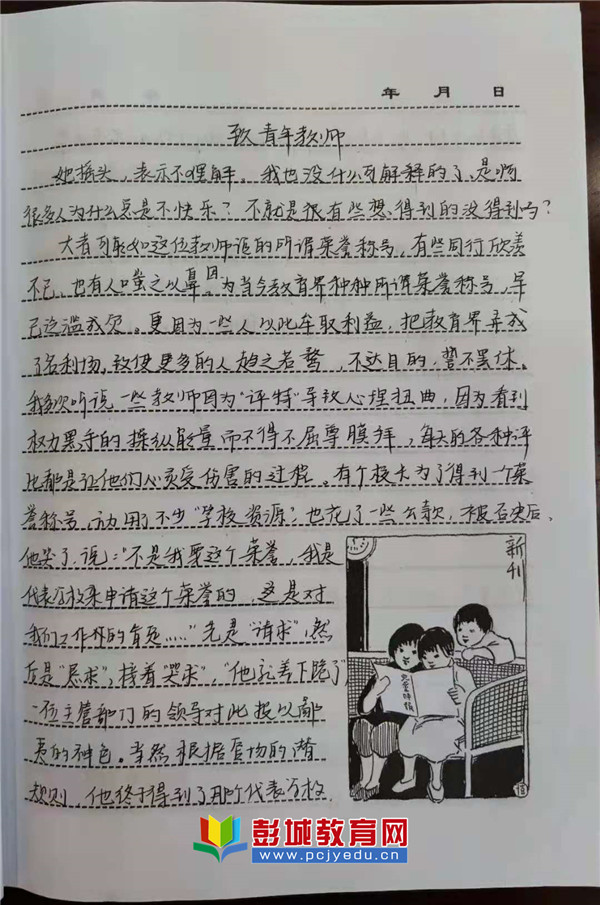 年 月 日
致青年教师
她摇头，表示不理解。我也没什么可解释的了，是啊
很多人为什么总是不快乐？不就是很有些想得到的没得到吗？
大者可能如这位教师追的所谓荣誉称号，有些同行欣羡
不已，也有人嗤之以鼻。因为当今教育界种种所谓荣誉称号，早
已泛滥成灾。更因为一些人以此牟取利益，把教育界弄成
了名利场，致使更多的人趋之若鹜，不达目的，誓不罢休。
我多次听说一些教师因为“评特”导致心理扭曲，因为看到
权力黑手的操纵能量而不得不屈尊膜拜，每天的各种评
比都是让他们心灵受伤害的过程。有个校长为了得到一个荣
誉称号，动用了不少“学校资源”也花了一些公款，被否决后，
他哭了，说：“不是我要这个荣誉，我是
代表学校来申请这个荣誉的，这是对
我们工作的肯定……”先是“请求”，然
后是“恳求”，接着“哭求”，“他就差下跪了”
一位主管部门的领导对此投以鄙
夷的神色。当然根据官场的潜
规则，他终于得到了那个代表学校
新刊
儿童时报
彭城教育网
www.pcjyedu.cn